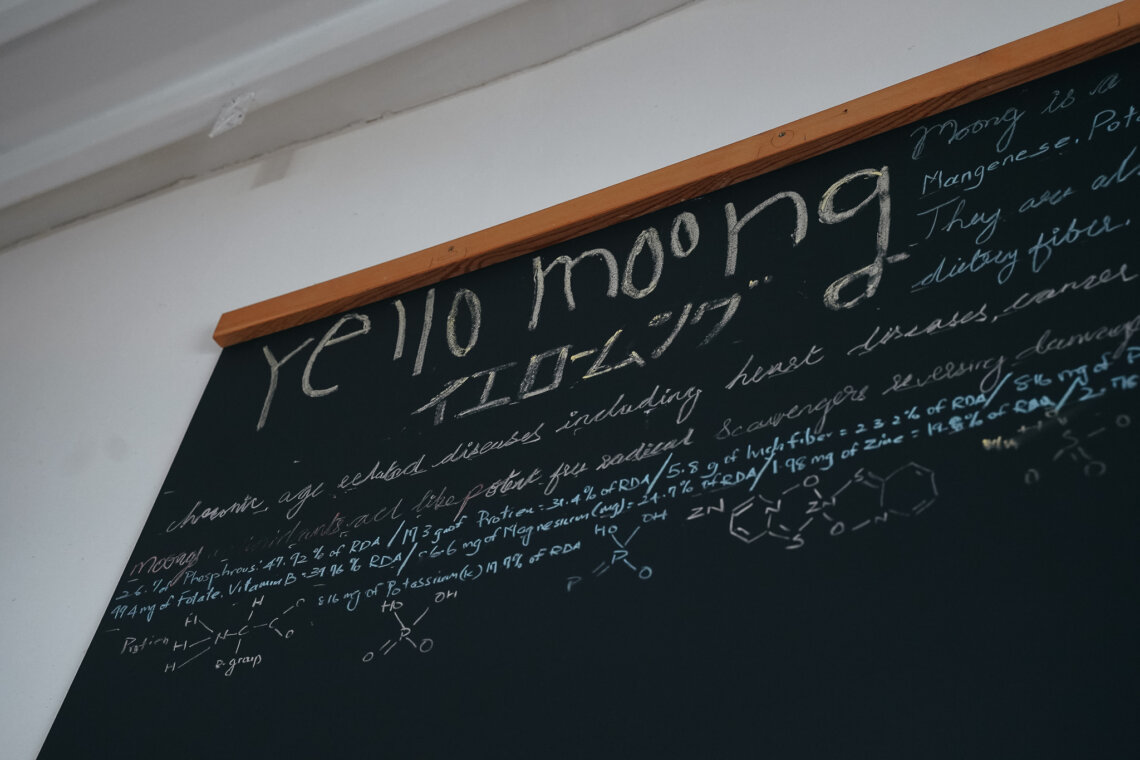 Yello moong
イエロームング
Moong is a
Mangenese, Pota
They are als
dietary fiber.
chronic, age related diseases including heart diseases, cancer
Moongs act like potent free radical Scavengers reversing damage
Phosphrous: 47.92 % of RDA / 17.3 g of Protien = 31.4% of RDA / 5.8 g of high fiber = 23.2% of RDA / 816 mg of P
494 mg of Folate, Vitamin B = RDA / 6.6 mg of Magnesium (mg) = 24.7% of RDA / 1.98 mg of Zinc = 19.8% of RDA / 2.
816 mg of Potassium(k) 17.9% of RDA
Protien H H H N C H C O
R-group
HO OH P O O
HO OH P P O
ZN N O ZN S S O N